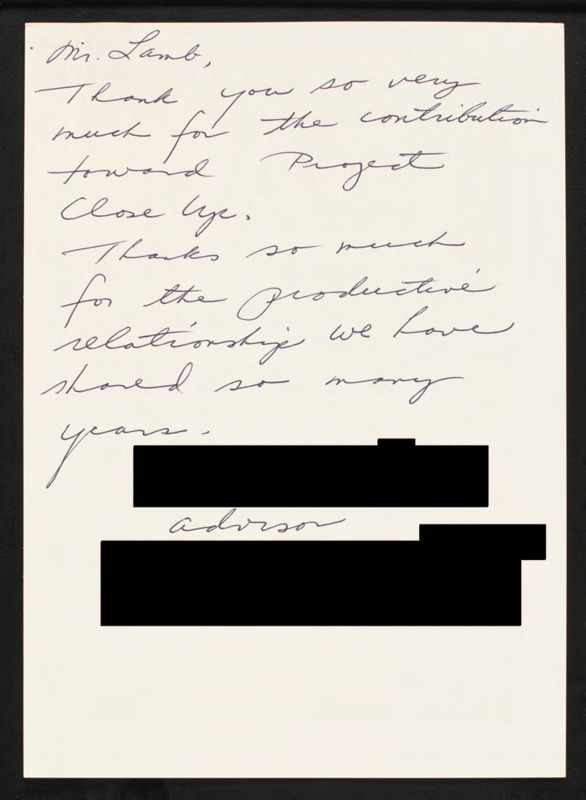 Mr. Lamb,
Thank you so very
much for the contribution
toward Project
Close Up.
Thanks so much
for the productive
relationship we have
shared so many
years.
advisor